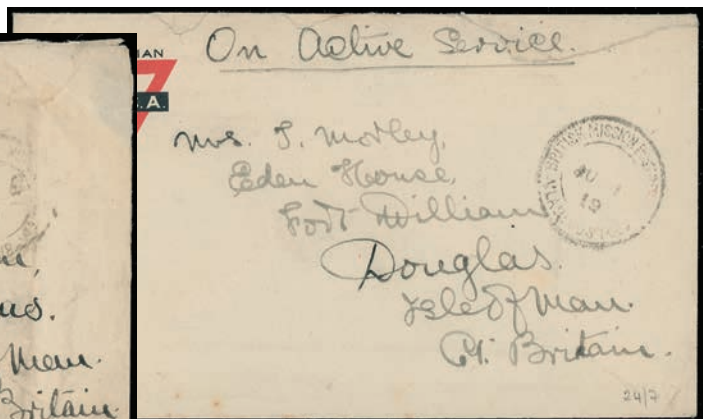 On Active Service.
IAN
.A.
Mrs. J. Morley,
Eden House,
Fort William
Douglas.
Isle of Man.
Gt. Britain.
BRITISH MISSION
19
24/7
Man.
Britain